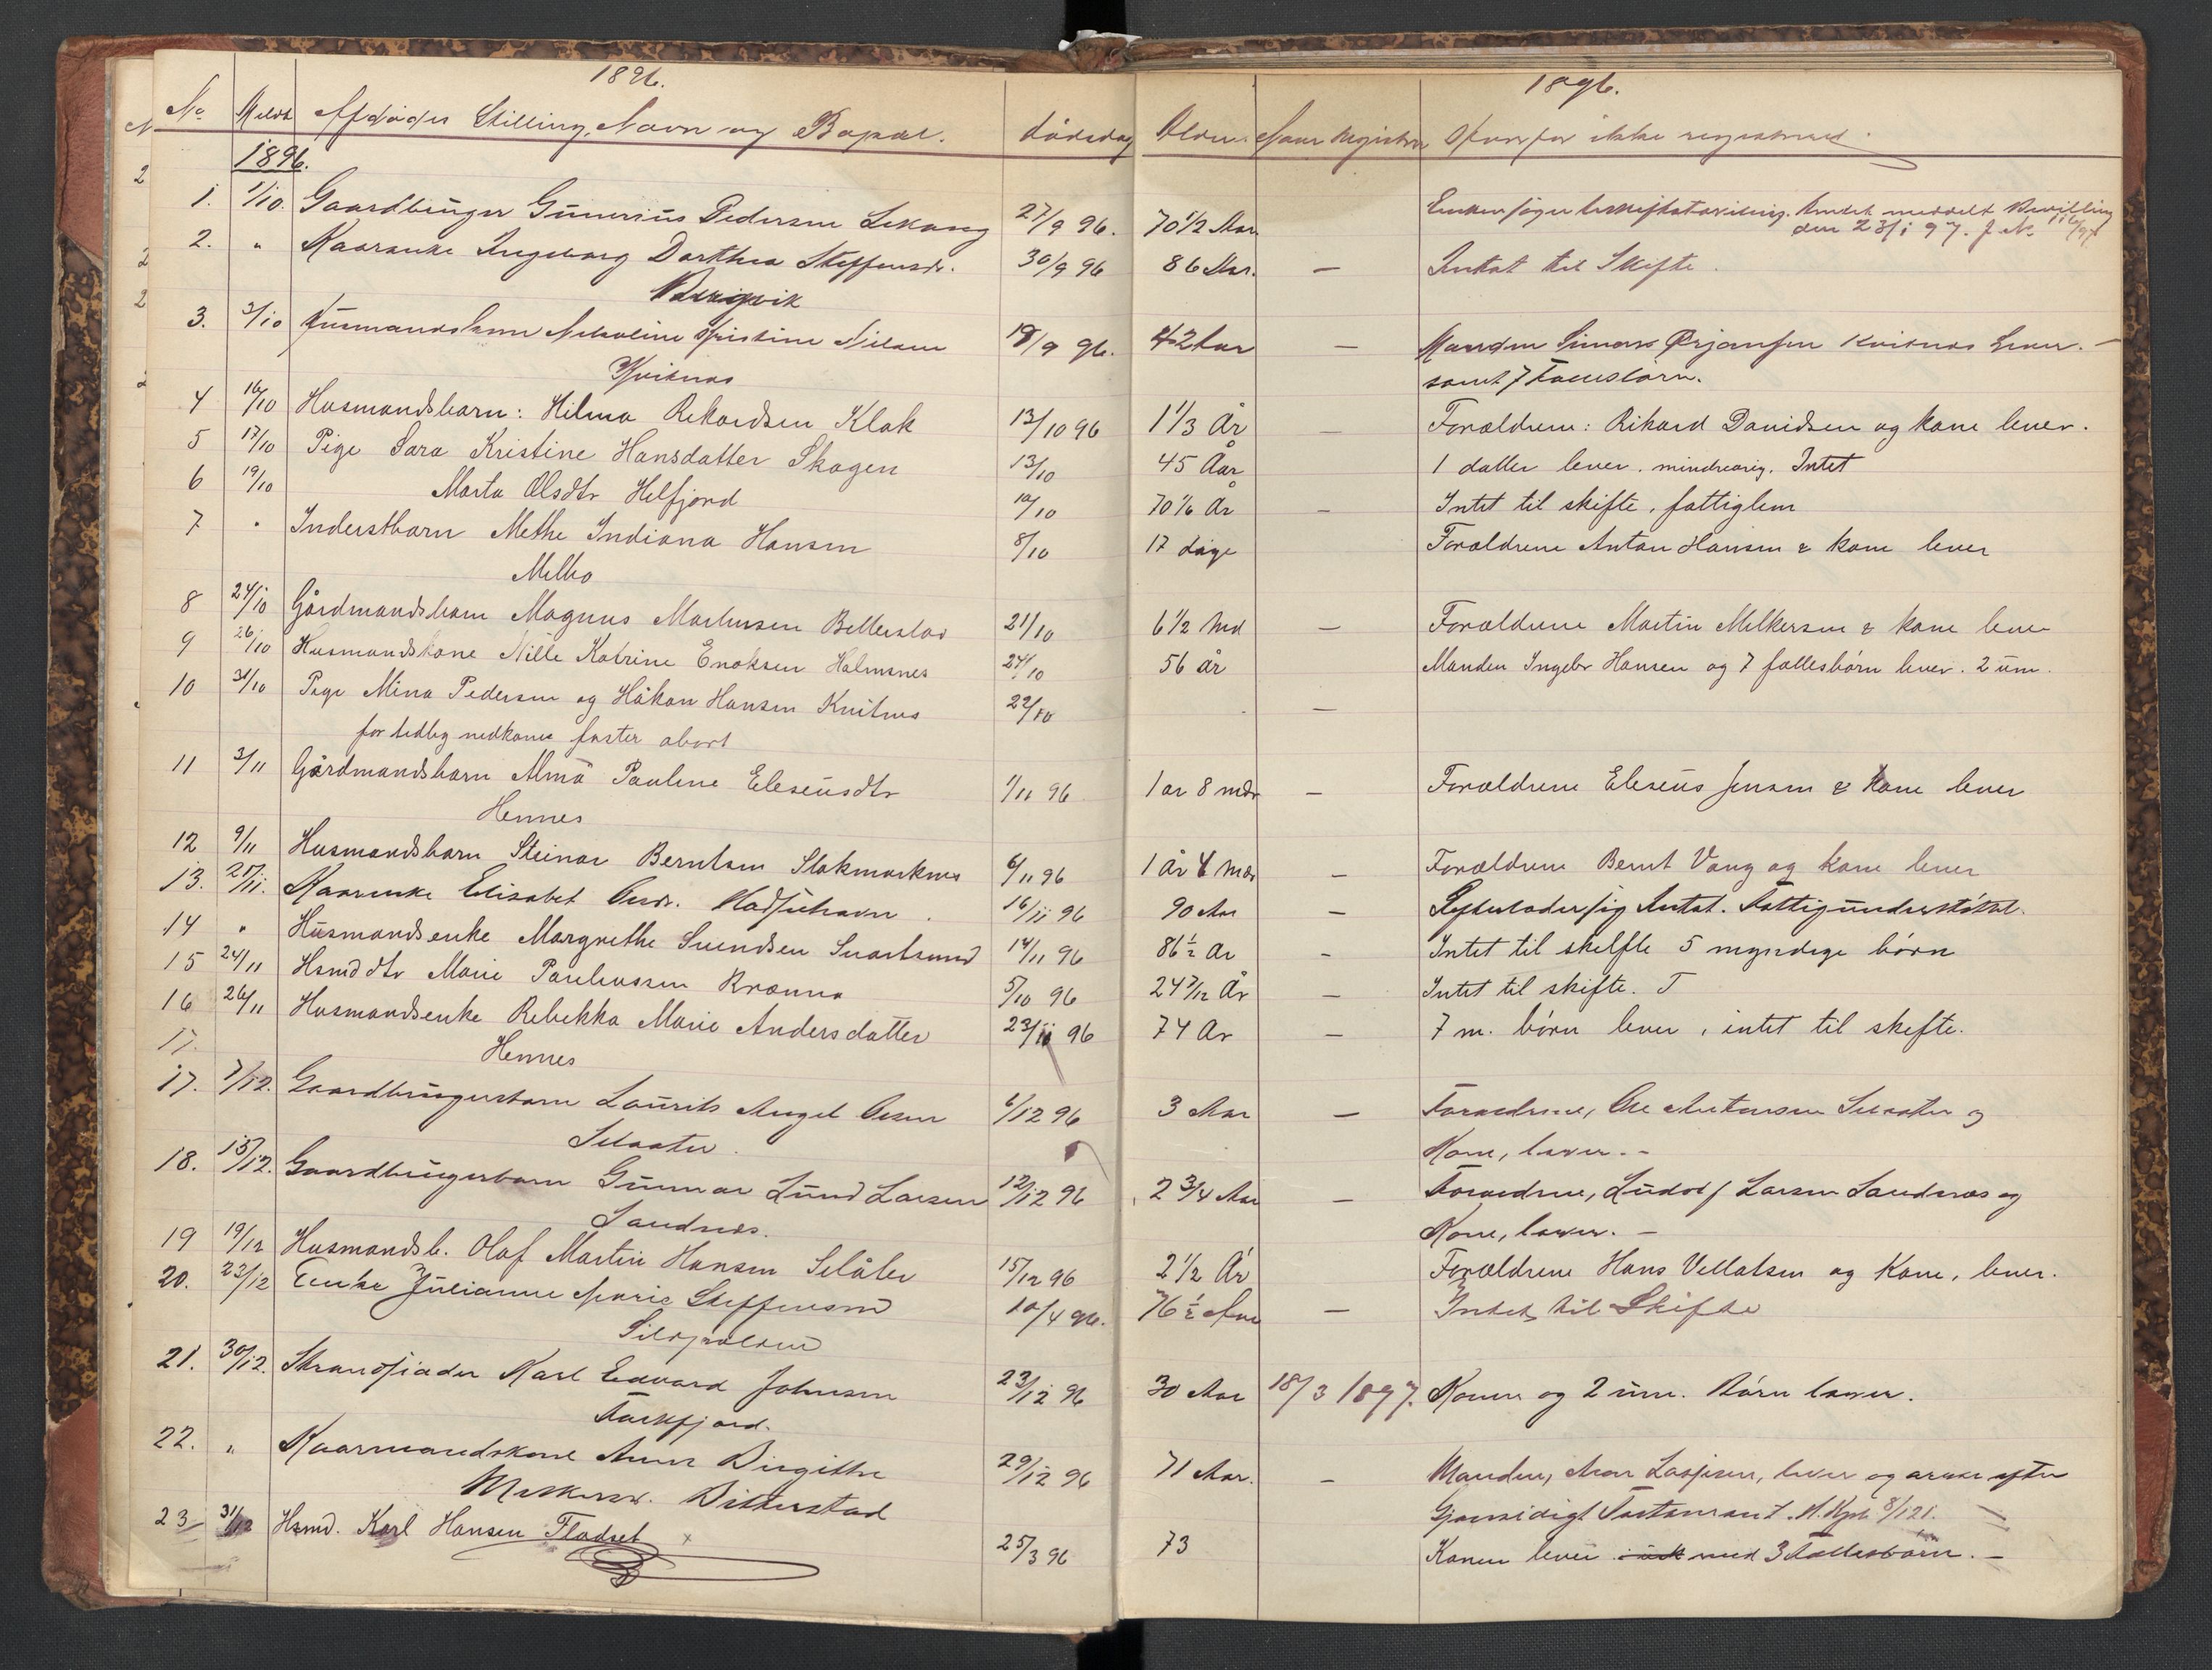 1896. 1896.
No Meldt Afdødes Stilling, Navn og Bopæl. Dødsdag Alder Naar registr. Hvorfor ikke registreret.
1896.
1. 1/10. Gaardbruger Gunerius Pedersen Lekang 27/9 96. 70 1/2 Aar Enken søger Uskiftetbevilling. Amtet meddelt Bevilling
den 23/1 97. J No 116/97
2. " Kaarenke Ingeborg Dorthea Steffensdr. 30/9 96 86 Aar. — Intet til Skifte.
3. 3/10 Husmandskone Nikoline Kristine Nilsen 18/9 96. 42 Aar — Manden Simon Ørjansen Kvitnes lever. —
Kvitnes samt 7 Fællesbørn.
4 16/10 Husmandsbarn: Hilma Rikardsen Klak 13/10 96 1 1/3 År — Forældrene: Rikard Davidsen og kone lever.
5 17/10 Pige Sara Kristine Hansdatter Skagen 13/10 45 Aar 1 datter lever. mindreårig. Intet
6 19/10 Marta Olsdtr Helfjord 10/10 70 1/6 År — Intet til skifte, fattiglem
7 " Inderstbarn Methe Indiana Hansen 8/10 17 dage Forældrene Anton Hansen & kone lever
Melbo
8 24/10 Gårdmandsbarn Magnus Martinsen Bitterstad 21/10 6 1/2 Md — Forældrene Martin Melkersen & kone lever
9 26/10 Husmandskone Nille Katrine Enoksen Holmsnes 24/10 56 år Manden Ingebr Hansen og 7 fællesbørn lever. 2 um.
10 31/10 Pige Mina Pedersen og Håkon Hansen Kvitnes 22/10 —
for tidlig nedkomst foster abort
11 3/11 Gårdmandsbarn Alma Pauline Eleseusdtr 1/11 96 1 ar 8 mdr — Forældrene Eleseus Jensen & kone lever
Hennes
12 9/11 Husmandsbarn Steinar Berntsen Stokmarknes 6/11 96 1 År 4 Mdr — Forældrene Bernt Vang og kone lever
13. 21/11. Kaarenke Elisabet Andr. Hadselhavn. 16/11 96 90 Aar — Efterlader sig Intet. Fattigunderstøttet.
14 " Husmandsenke Margrethe Svendsen Svartsund 14/11 96 86 1/2 Ar - Intet til skifte 5 myndige børn
15 24/11 Hsmddtr Marie Paulussen Kræmna 5/10 96 24 7/12 År — Intet til skifte. T
16 26/11 Husmandsenke Rebekka Marie Andersdatter 23/11 96 74 Ar — 7 m. børn lever, intet til skifte.
17. Hennes
17. 7/12. Gaardbrugerbarn Laurits Angel Olsen 6/12 96 3 Aar — Forældrene, Ole Antonsen Selaater og
Selaater. Kone, lever. -
18. 15/12. Gaardbrugerbarn Gunnar Lund Larsen 12/12 96 2 3/4 Aar — Forældrene, Ludolf Larsen Sandnæs og
Sandnæs. Kone, lever. —
19 19/12 Husmandsb. Olaf Martin Hansen Selåter 15/12 96 2 1/2 År Forældrene Hans Vellatsen og Kone, lever.
20. 23/12 Enke Julianne Marie Steffensen 10/4 96. 76 1/2 Aar — Intet til Skifte
21. 30/12. Strandsidder Karl Edvard Johnsen 23/12 96 30 Aar 18/3 1897. Konen og 2 um. Børn lever.
22. " Kaarmandskone Anne Birgitte 29/12 96 71 Aar. — Manden, Aron Lassesen, lever og arver efter
Melkersd. Bitterstad Gjensidigt Testament.
23 31/12 Hsmd. Karl Hansen Fladset 25/3 96 73 Konen lever med 3 Fællesbørn. —